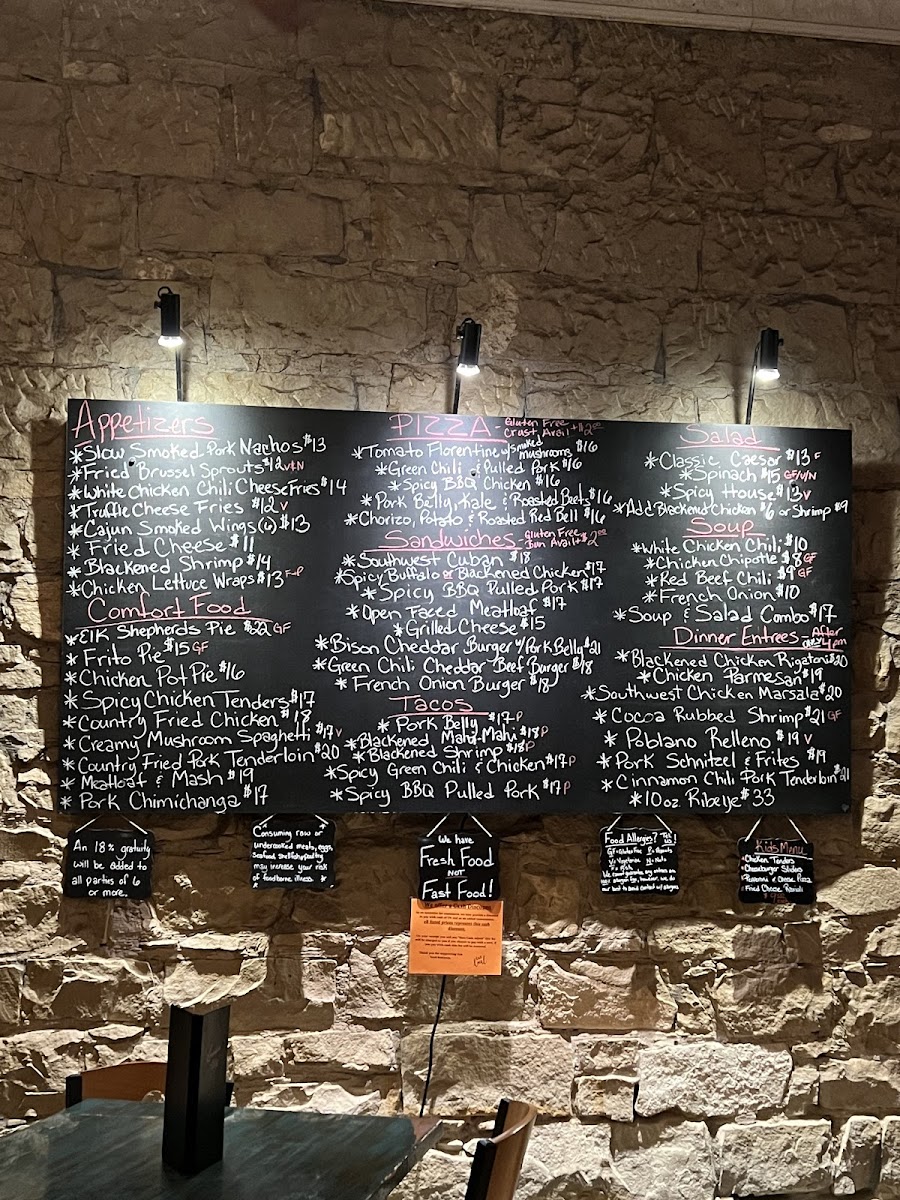 Appetizers
*Slow Smoked Pork Nachos $13
*Fried Brussel Sprouts $12 V+N
*White Chicken Chili Cheese Fries $14
*Truffle Cheese Fries $12 V
*Cajun Smoked Wings (6) $13
*Fried Cheese $11
*Blackened Shrimp $14
*Chicken Lettuce Wraps $13
Comfort Food
*Elk Shepherds Pie $22 GF
*Frito Pie $15 GF
*Chicken Pot Pie $16
*Spicy Chicken Tenders $17
*Country Fried Chicken $18
*Creamy Mushroom Spaghetti $17 V
*Country Fried Pork Tenderloin $20
*Meatloaf & Mash $19
*Pork Chimichanga $17
PIZZA - Gluten Free
Crust Avail +$2.00
*Tomato Florentine w/smoked mushrooms $16
*Green Chili & Pulled Pork $16
*Spicy BBQ Chicken $16
*Pork Belly, Kale & Roasted Beets $16
*Chorizo, Potato & Roasted Red Bell $16
Sandwiches - Gluten Free
Bun Avail +$2.00
*Southwest Cuban $18
*Spicy Buffalo or Blackened Chicken $17
*Spicy BBQ Pulled Pork $17
*Open Faced Meatloaf $17
*Grilled Cheese $15
*Bison Cheddar Burger w/Pork Belly $21
*Green Chili Cheddar Beef Burger $18
*French Onion Burger $18
Tacos
*Pork Belly $17 P
*Blackened Mahi-Mahi $18 P
*Blackened Shrimp $18 P
*Spicy Green Chili & Chicken $17 P
*Spicy BBQ Pulled Pork $17 P
Salad
*Classic Caesar $13 F
*Spinach $15 GF/V/N
*Spicy House $13 V
*Add Blackened Chicken $6 or Shrimp $9
Soup
*White Chicken Chili $10
*Chicken Chipotle $8 GF
*Red Beef Chili $9 GF
*French Onion $10
*Soup & Salad Combo $17
Dinner Entrees - After 4pm only
*Blackened Chicken Rigatoni $20
*Chicken Parmesan $19
*Southwest Chicken Marsala $20
*Cocoa Rubbed Shrimp $21 GF
*Poblano Relleno $19 V
*Pork Schnitzel & Frites $19
*Cinnamon Chili Pork Tenderloin $21
*10oz Ribeye $33
An 18% gratuity
will be added to
all parties of 6
or more.
Consuming raw or
undercooked meats, eggs,
seafood, shellfish, poultry
may increase your risk
of foodborne illness.
We have
Fresh Food
NOT
Fast Food!
Food Allergies? Tell us!
GF=Gluten Free P=Peanuts
V=Vegetarian N=Nuts
F=Fish
Kids Menu
*Chicken Tenders
*Cheeseburger Sliders
*Pepperoni & Cheese Pizza
*Fried Cheese Ravioli